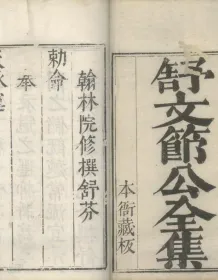 舒文節公全集
本衙藏板
翰林院修撰舒芬
勅命
奉